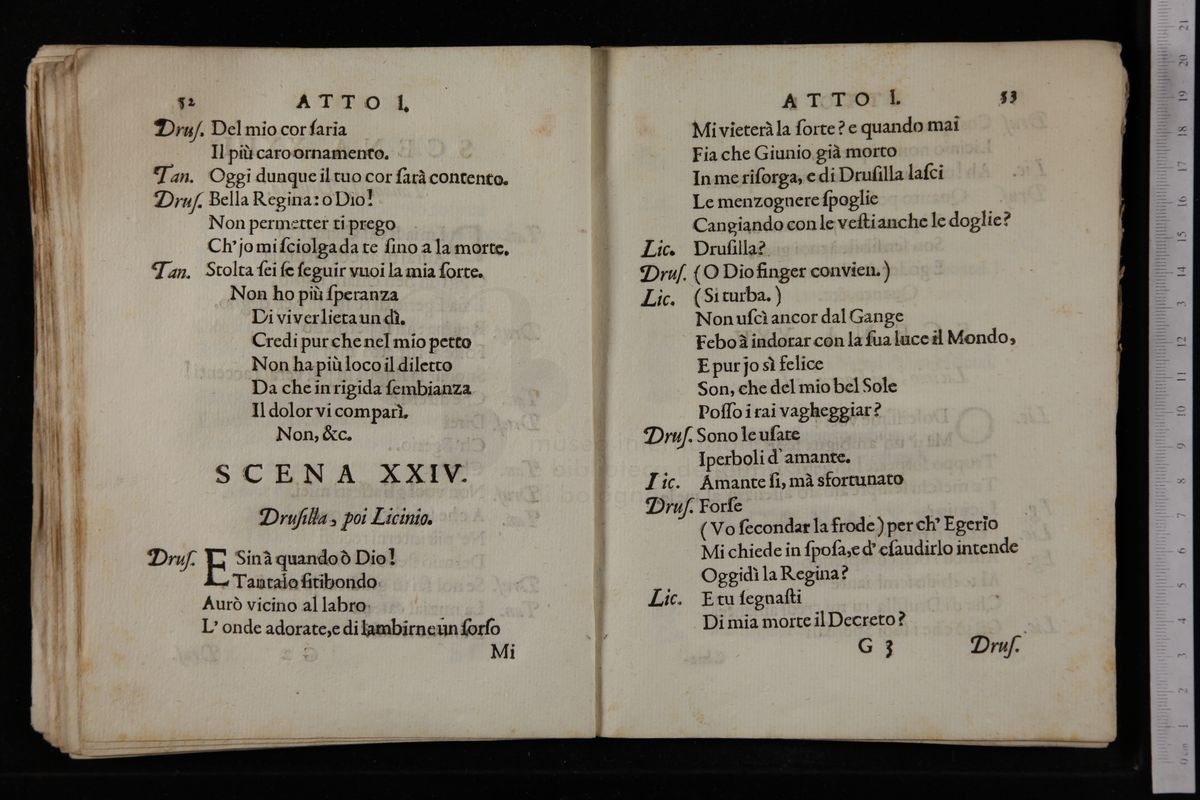 52 ATTO I.
Druſ. Del mio cor ſaria
Il più caro ornamento.
Tan. Oggi dunque il tuo cor ſarà contento.
Druſ. Bella Regina: o Dio!
Non permetter ti prego
Ch' jo mi ſciolga da te ſino a la morte.
Tan. Stolta ſei ſe ſeguir vuoi la mia ſorte.
Non ho più ſperanza
Di viver lieta un dì.
Credi pur che nel mio petto
Non ha più loco il diletto
Da che in rigida ſembianza
Il dolor vi comparì.
Non, &c.
SCENA XXIV.
Druſilla, poi Licinio.
Druſ. E Sin à quando ò Dio!
Tantalo ſitibondo
Aurò vicino al labro
L' onde adorate, e di lambirne un ſorſo
Mi
ATTO I. 53
Mi vieterà la ſorte? e quando mai
Fia che Giunio già morto
In me riſorga, e di Druſilla laſci
Le menzognere ſpoglie
Cangiando con le veſti anche le doglie?
Lic. Druſilla?
Druſ. (O Dio finger convien.)
Lic. (Si turba.)
Non uſcì ancor dal Gange
Febo à indorar con la ſua luce il Mondo,
E pur jo sì felice
Son, che del mio bel Sole
Poſſo i rai vagheggiar?
Druſ. Sono le uſate
Iperboli d' amante.
Lic. Amante ſi, mà sfortunato
Druſ. Forſe
(Vo ſecondar la frode) per ch' Egerio
Mi chiede in ſpoſa, e d' eſaudirlo intende
Oggidì la Regina?
Lic. E tu ſegnaſti
Di mia morte il Decreto?
G 3 Druſ.